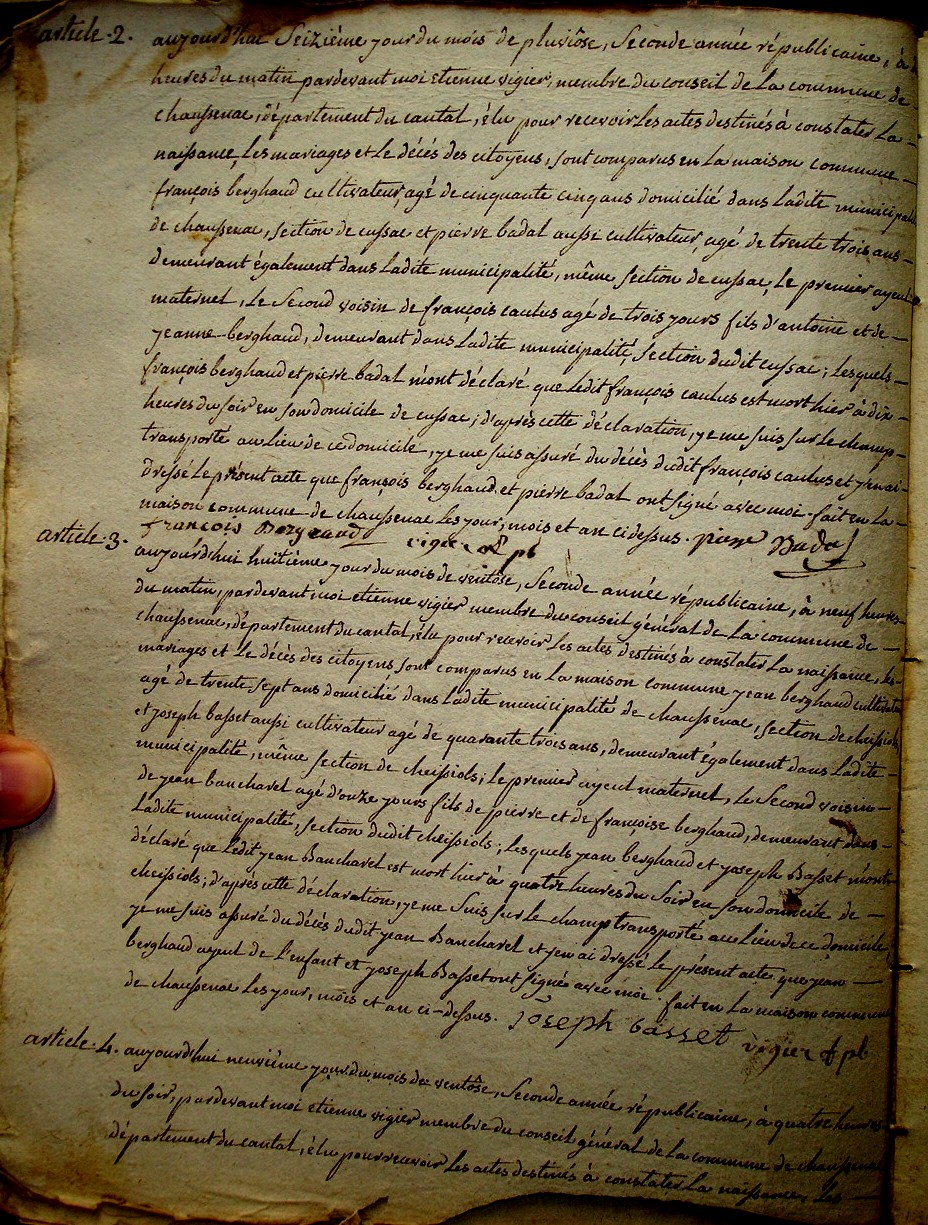 article .2. aujourd'hui Seizième jour du mois de pluviôse, Seconde année républicaine, à
heures du matin pardevant moi etienne vigier, membre du conseil de la commune de
chaussenac, département du cantal, élu pour recevoir les actes destinés à constater la
naissance, les mariages et le décès des citoyens, sont comparus en la maison commune
françois berghaud cultivateur, agé de cinquante cinq ans domicilié dans ladite municipalité
de chaussenac, section de cussac et pierre badal aussi cultivateur, agé de trente trois ans
demeurant également dans ladite municipalité, même section de cussac, le premier ayeul
maternel, le Second voisin de françois caulus agé de trois jours fils d'antoine et de
jeanne berghaud, demeurant dans ladite municipalité, section dudit cussac ; lesquels
françois berghaud et pierre badal m'ont déclaré que ledit françois caulus est mort hier à dix
heures du soir en son domicile de cussac ; d'après cette déclaration, je me suis sur le champ
transporté au lieu de ce domicile, je me suis assuré du décès dudit françois caulus et j'en ai
dressé le présent acte que françois berghaud et pierre badal ont signé avec moi. fait en la
maison commune de chaussenac les jour, mois et an ci dessus. pierre Badal
françois Bergeaud vigier of pl
article .3. aujourd'hui huitième jour du mois de ventôse, Seconde année républicaine, à neuf heures
du matin, pardevant moi etienne vigier membre du conseil général de la commune de
chaussenac, département du cantal, élu pour recevoir les actes destinés à constater la naissance, les
mariages et le décès des citoyens sont comparus en la maison commune jean berghaud cultivateur
agé de trente sept ans domicilié dans ladite municipalité de chaussenac, section de cheissiols,
et joseph basset aussi cultivateur agé de quarante trois ans, demeurant également dans ladite
municipalité, même section de cheissiols ; le premier ayeul maternel, le Second voisin
de jean bancharel agé d'onze jours fils de pierre et de françoise berghaud, demeurant dans
ladite municipalité, section dudit cheissiols ; lesquels jean berghaud et joseph Basset m'ont
déclaré que ledit jean Bancharel est mort hier à quatre heures du Soir en son domicile de
cheissiols ; d'après cette déclaration, je me Suis sur le champ transporté au lieu de ce domicile,
je me suis assuré du décès dudit jean Bancharel et j'en ai dressé le présent acte que jean
berghaud ayeul de l'enfant et joseph Basset ont signé avec moi. fait en la maison commune
de chaussenac les jour, mois et an ci-dessus. joseph basset vigier of pl
article .4. aujourd'hui neuvième jour du mois de ventôse, Seconde année républicaine, à quatre heures
du soir, pardevant moi etienne vigier membre du conseil général de la commune de chaussenac
département du cantal, élu pour recevoir les actes destinés à constater la naissance, les